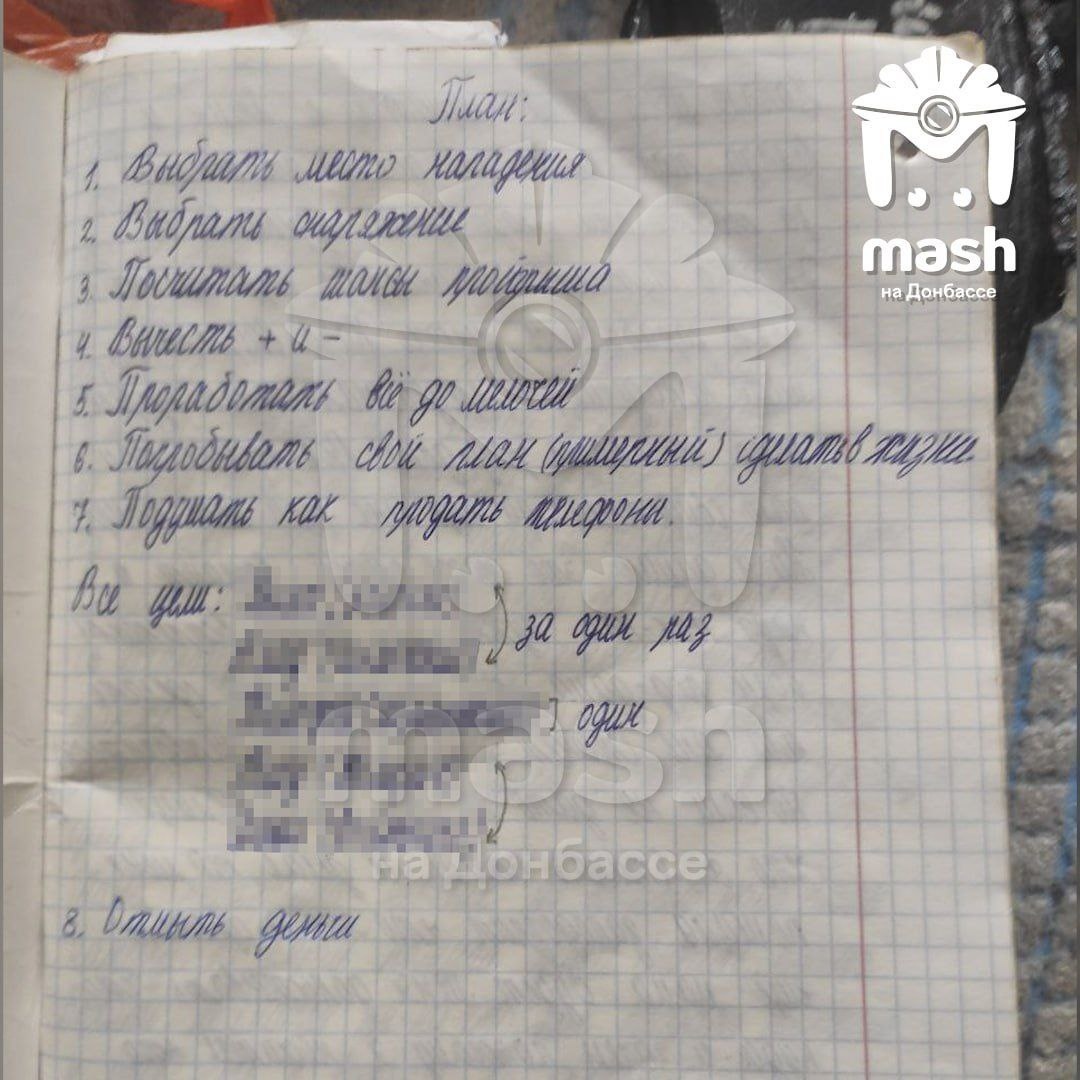 mash
на Донбассе
План:
1. Выбрать место нападения
2. Выбрать снаряжение
3. Посчитать шансы проигрыша
4. Вычесть + и -
5. Проработать всё до мелочей
6. Попробывать свой план (примерный) сделать в жизни.
7. Подумать как продать телефоны.
Все цели:
за один раз
один
mash
на Донбассе
8. Отмыть деньги